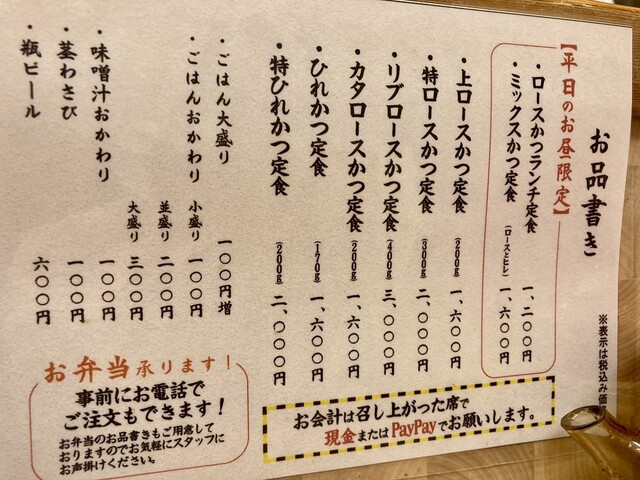 お品書き
※表示は税込み価
【平日のお昼限定】
・ロースかつランチ定食 一、二〇〇円
・ミックスかつ定食(ロースとヒレ) 一、六〇〇円
・上ロースかつ定食(200g) 一、六〇〇円
・特ロースかつ定食(300g) 二、〇〇〇円
・リブロースかつ定食(400g) 三、〇〇〇円
・カタロースかつ定食(200g) 一、六〇〇円
・ひれかつ定食(170g) 一、六〇〇円
・特ひれかつ定食(200g) 二、〇〇〇円
・ごはん大盛り 一〇〇円増
・ごはんおかわり 小盛り 一〇〇円
並盛り 二〇〇円
大盛り 三〇〇円
・味噌汁おかわり 一〇〇円
・茎わさび 一〇〇円
・瓶ビール 六〇〇円
お会計は召し上がった席で
現金またはPayPayでお願いします。
お弁当承ります!
事前にお電話で
ご注文もできます!
お弁当のお品書きもご用意して
おりますのでお気軽にスタッフに
お声掛けください。